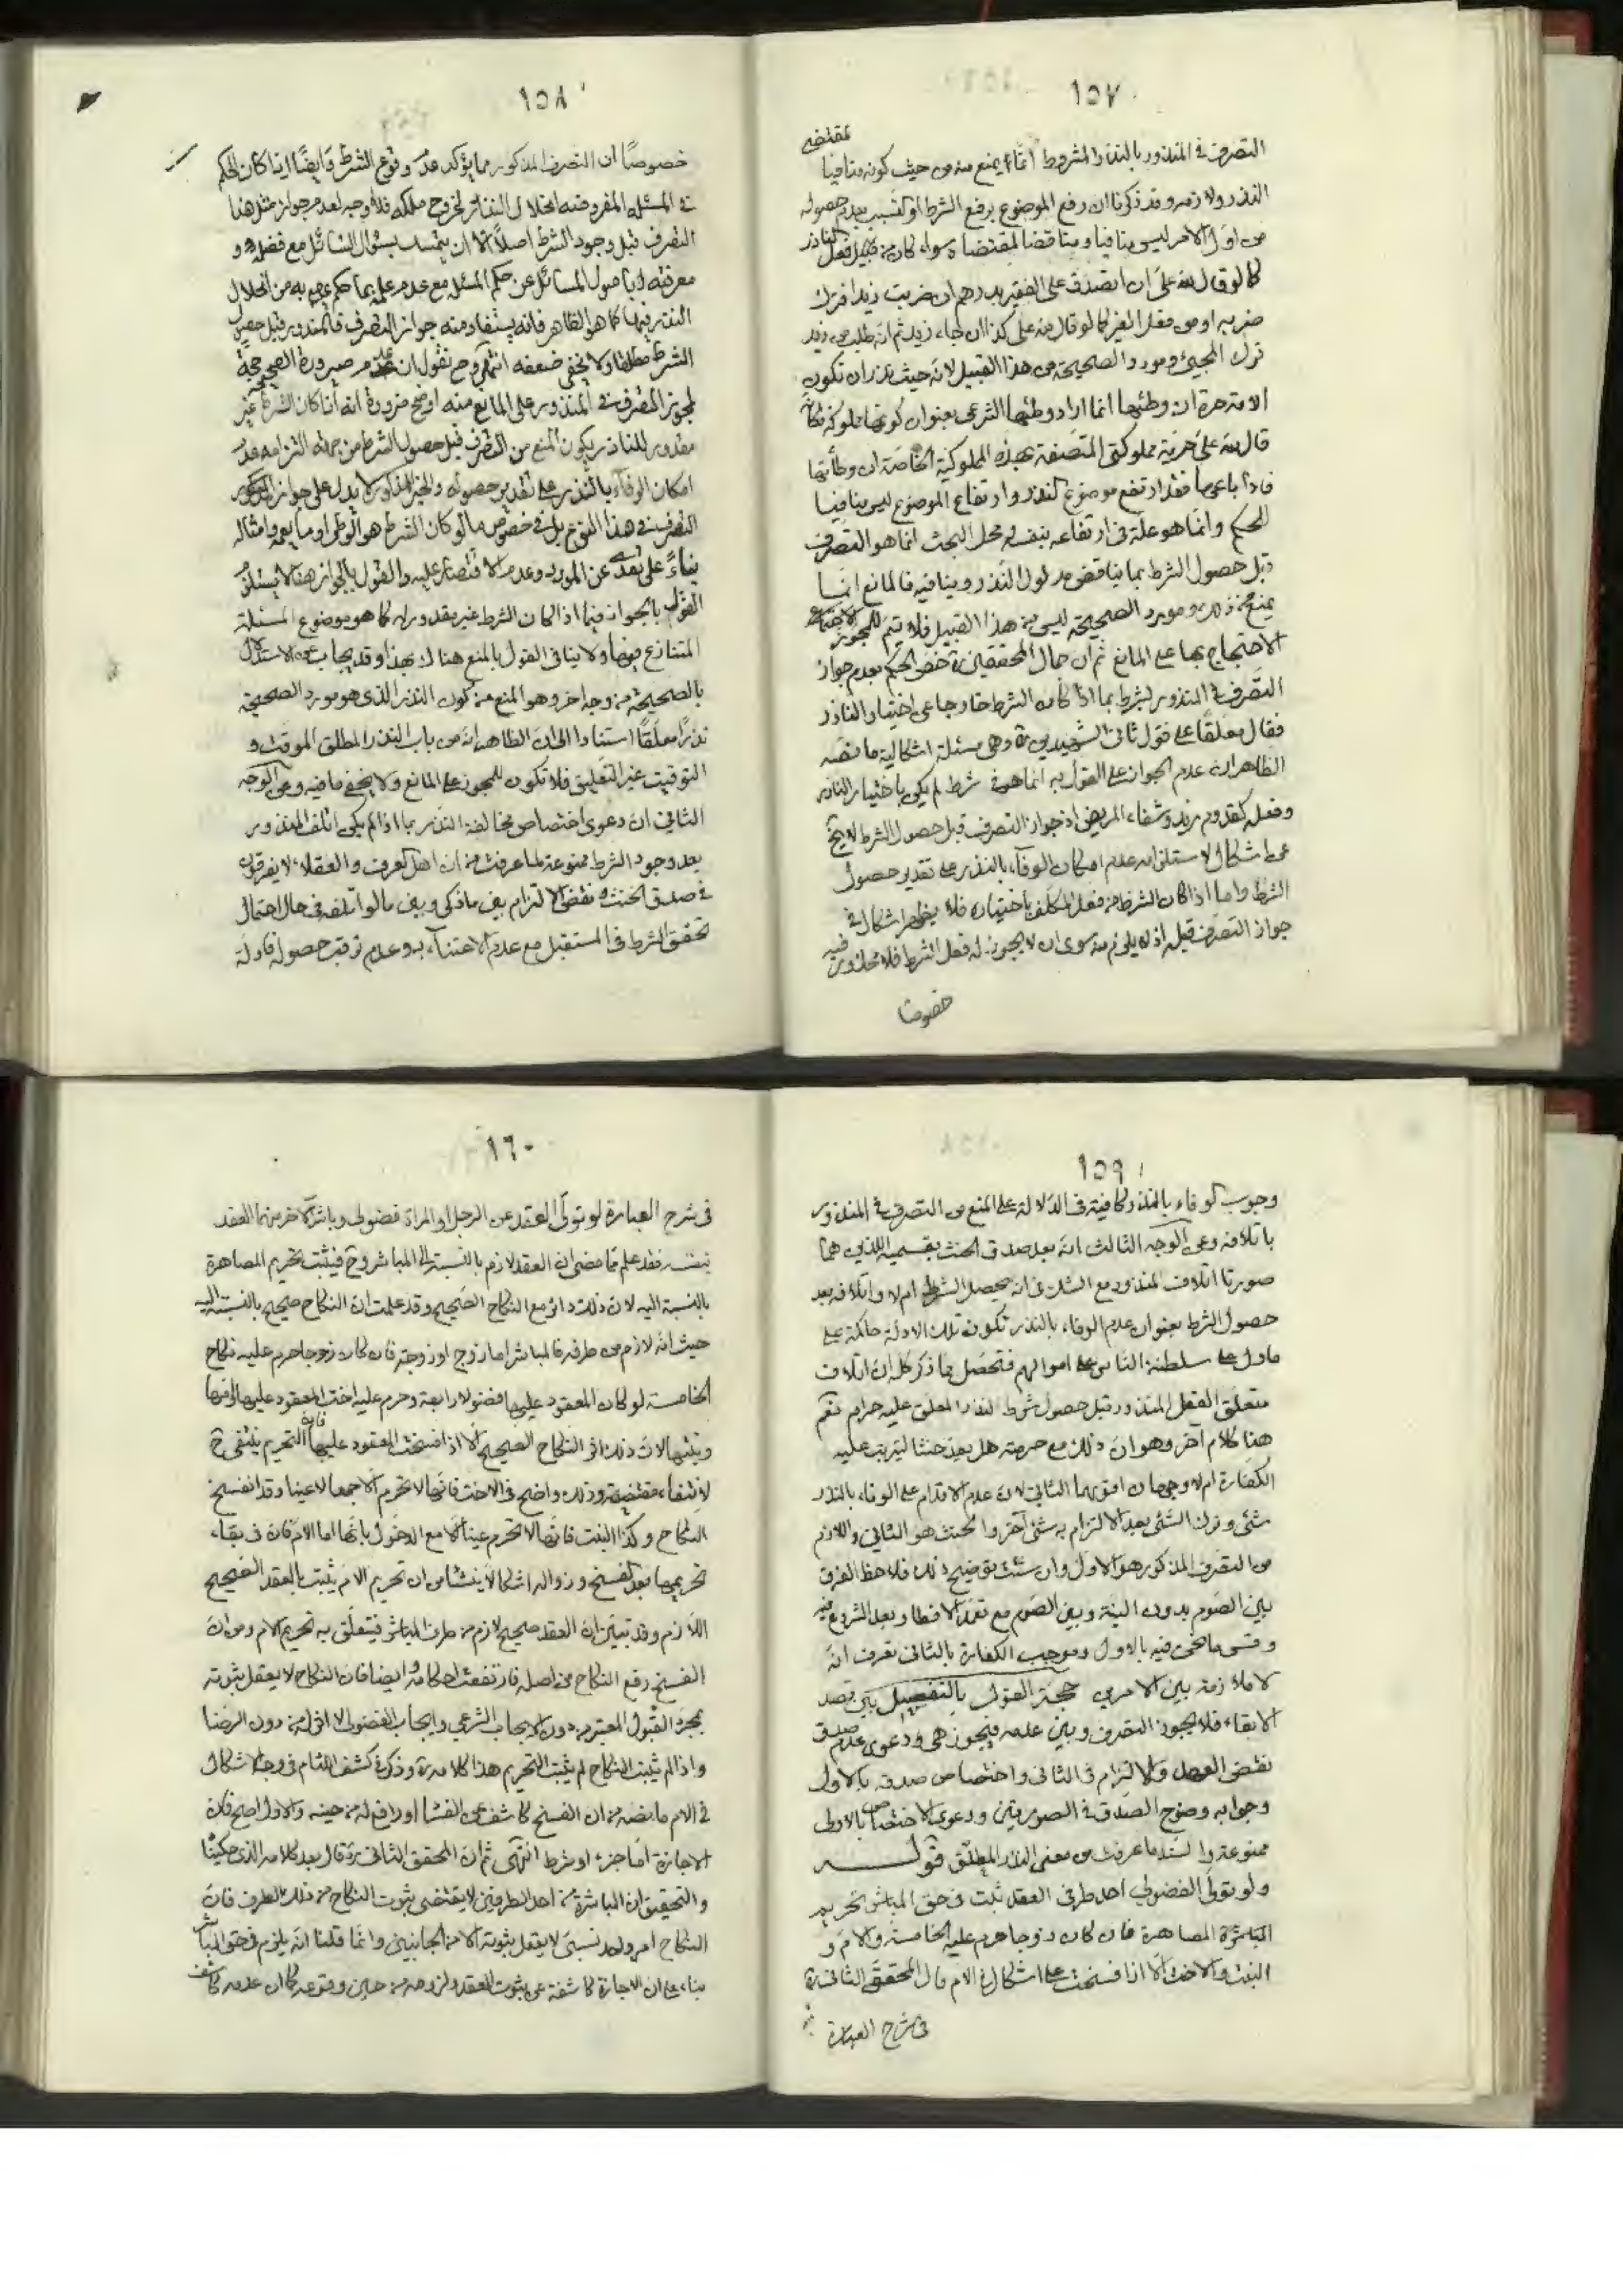 ١٥٧
التصرف في المنذور بالنذر المشروط انما يمنع منه من حيث كونه منافيا لمقتضى
النذر ولازمه وقد ذكرنا ان رفع الموضوع برفع الشرط او لتسبيب بعدم حصوله
من اول الامر ليس منافيا ومناقضا لمقتضاه سواء كان من قبيل فعل الناذر
كما لو قال لله علي ان اتصدق على الفقير بدرهم ان ضربت زيدا فترك
ضربه او من فعل الغير كما لو قال لله علي كذا ان جاء زيد ثم انه طلب من زيد
ترك المجيئ ومورد الصحيحة من هذا القبيل لانه حيث نذر ان تكون
الامة حرة ان وطئها انما اراد وطئها الشرعي بعنوان كونها مملوكة فكانه
قال لله علي حرية مملوكتي المتصفة بهذه المملوكية الخاصة ان وطأتها
فاذا باعها فقد ارتفع موضوع النذر وارتفاع الموضوع ليس منافيا
للحكم وانما هو علة في ارتفاعه بنفسه ومحل البحث انما هو التصرف
قبل حصول الشرط بما يناقض مدلول النذر وينافيه فالمانع انما
يمنع من ذلك ومورد الصحيحة ليس من هذا القبيل فلا يتم للمجوز
الاحتجاج بها على المانع ثم ان جمال المحققين ره خص الحكم بعدم جواز
التصرف في المنذور لشرط بما اذا كان الشرط خارجا عن اختيار الناذر
فقال معلقا على قول ثاني الشهيدين ره وهي مسئلة اشكالية ما نصه
الظاهر ان عدم الجواز على القول به انما هو في شرط لم يكن باختيار الناذر
وفعله كقدوم زيد وشفاء المريض اذ جواز التصرف قبل حصول الشرط لا يخ
عن اشكال لاستلزامه عدم امكان الوفاء بالنذر على تقدير حصول
الشرط واما اذا كان الشرط من فعل المكلف باختياره فلا يظهر اشكال في
جواز التصرف قبله اذ لا يلزم منه سوى ان لا يجوز له فعل الشرط فلا محذور فيه
خصوصا
١٥٨
خصوصا ان التصرف المذكور مما يؤكد عدم وقوع الشرط وايضا اذا كان الحكم
في المسئلة المفروضة انحلال النذر لخروج ملكه فلا وجه لعدم جواز مثل هذا
التصرف قبل وجود الشرط اصلا الا ان يتمسك بسؤال السائل مع فضله و
معرفته باصول المسائل عن حكم المسئلة مع عدم علمه بما حكم به من انحلال
النذر فيها كما هو الظاهر فانه يستفاد منه جواز التصرف في المنذور قبل حصول
الشرط مطلقا ولا يخفى ضعفه انتهى وح نقول ان عدم صيرورة الصحيحة حجة
لمجوز التصرف في المنذور على المانع منه اوضح ضرورة انه اذا كان الشرط غير
مقدور للناذر يكون المنع من التصرف قبل حصول الشرط من جهة التزامه عدم
امكان الوفاء بالنذر على تقدير حصوله والخبر المذكور لا يدل على جواز
التصرف في هذا النوع بل في خصوص ما لو كان الشرط هو الوطي او ما يعمه وامثاله
بناء على تعدي عن المورد وعدم الاقتصار عليه والقول بالجواز هنا لا يستلزم
القول بالجواز فيما اذا كان الشرط غير مقدور له كما هو موضوع المسئلة
المتنازع فيها ولا ينافي القول بالمنع هناك بهذا وقد يجاب عن الاستدلال
بالصحيحة من وجه اخر وهو المنع من كون النذر الذي هو مورد الصحيحة
نذرا معلقا استنادا الى ان الظاهر انه من باب النذر المطلق الموقت و
التوقيت غير التعليق فلا تكون للمجوز على المانع ولا يخفى ما فيه وعن الوجه
الثاني ان دعوى اختصاص مخالفة النذر بما اذا لم يكن اتلف المنذور
بعد وجود الشرط ممنوعة لما عرفت من ان اهل العرف والعقلاء لا يفرقون
في صدق الحنث ونقض الالتزام بين ما ذكر وبين ما لو اتلفه في حال احتمال
تحقق الشرط في المستقبل مع عدم الاعتناء به وعدم ترقب حصوله فادلة
١٥٩
وجوب الوفاء بالنذر كافية في الدلالة على المنع من التصرف في المنذور
باتلافه وعن الوجه الثالث انه بعد صدق الحنث بقسميه اللذين هما
صورتا اتلاف المنذور مع الشك في انه يحصل الشرط ام لا واتلافه بعد
حصول الشرط بعنوان عدم الوفاء بالنذر تكون تلك الادلة حاكمة على
ما دل على سلطنة الناس على اموالهم فتحصل مما ذكر كله ان اتلاف
متعلق الفعل المنذور قبل حصول شرط النذر المعلق عليه حرام نعم
هنا كلام اخر وهو ان ذلك مع حرمته هل يعد حنثا ليترتب عليه
الكفارة ام لا وجهان اقويهما الثاني لان عدم الاقدام على الوفاء بالنذر
شئ وترك الشئ بعد الالتزام به شئ اخر والحنث هو الثاني واللازم
من التصرف المذكور هو الاول وان شئت توضيح ذلك فلاحظ الفرق
بين الصوم بدون النية وبين الصوم مع تعمد الافطار بعد الشروع فيه
وقس ما نحن فيه بالاول وموجب الكفارة بالثاني تعرف انه
لا ملازمة بين الامرين حجة القول بالتفصيل بين قصد
الابقاء فلا يجوز التصرف وبين عدمه فيجوز هي دعوى عدم صدق
نقض العهد والالتزام في الثاني واختصاص صدقه بالاول
وجوابه وضوح الصدق في الصورتين ودعوى الاختصاص بالاولى
ممنوعة والسند ما عرفت من معنى النذر المعلق قوله
ولو تولى الفضولي احد طرفي العقد ثبت في حق المباشر تحريم
المصاهرة فان كان زوجا حرم عليه الخامسة والام و
البنت والاخت الا اذا فسخت على اشكال في الام قال المحقق الثاني ره
في شرح العبارة
١٦٠
في شرح العبارة لو تولى العقد عن الرجل او المراة فضولي وباشر الاخر منهما العقد
بنفسه فقد علم مما مضى ان العقد لازم بالنسبة الى المباشر وح فيثبت تحريم المصاهرة
بالنسبة اليه لان ذلك دائر مع النكاح الصحيح وقد علمت ان النكاح صحيح بالنسبة اليه
حيث انه لازم من طرفه فالمباشر اما زوج او زوجة فان كان زوجا حرم عليه نكاح
الخامسة لو كان المعقود عليها فضولا رابعة وحرم عليه اخت المعقود عليها وامها
وبنتها لان ذلك اثر النكاح الصحيح الا اذا فسخت المعقود عليها فان التحريم ينتفي ح
لانتفاء مقتضيه وذلك واضح في الاخت فانها لا تحرم الا جمعا لا عينا وقد انفسخ
النكاح وكذا البنت فانها لا تحرم عينا الا مع الدخول بامها اما الام فان في بقاء
تحريمها بعد الفسخ وزواله اشكالا ينشأ من ان تحريم الام يثبت بالعقد الصحيح
اللازم وقد تبين ان العقد صحيح لازم من طرف المباشر فيتعلق به تحريم الام ومن ان
الفسخ رفع النكاح من اصله فارتفعت احكامه وايضا فان النكاح لا يعقل ثبوته
بمجرد القبول المعتبر من دون الايجاب الشرعي وايجاب الفضولي لا اثر له من دون الرضا
واذا لم يثبت النكاح لم يثبت التحريم هذا كلامه ره وذكر في كشف اللثام في وجه الاشكال
في الام ما نصه من ان الفسخ كاشف عن الفساد او رافع له من حينه والاول اصح فان
الاجازة اما جزء او شرط انتهى ثم ان المحقق الثاني ره قال بعد كلامه الذي حكينا
والتحقيق ان المباشرة من احد الطرفين لا يقتضي ثبوت النكاح من ذلك الطرف فان
النكاح امر واحد نسبي لا يعقل ثبوته الا من الجانبين وانما قلنا انه يلزم في حق المباشر
بناء على ان الاجازة كاشفة عن ثبوت العقد ولزومه من حين وقوعه كما ان عدمه كاشف